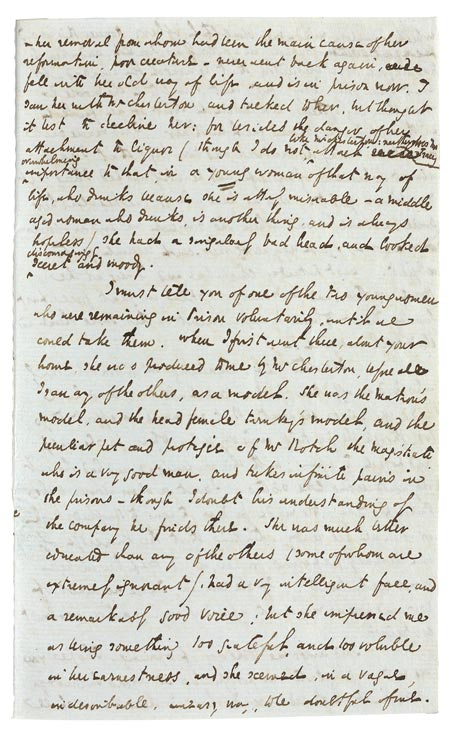 – her removal from whom had been the main cause of her
reformation, poor creature – never went back again,
fell into her old way of life, and is in prison now. I
saw her with Mr Chesterton, and talked to her, but thought
it best to decline her: for besides the danger of her
like Mr Chesterton:
attachment to liquor (though I do not, attach
overwhelming
importance to that in a young woman of that way of
life, who drinks because she is utterly miserable – a middle
aged woman who drinks, is another thing, and is always
hopeless) she had a singularly bad head, and looked
discouragingly
secret and moody.
I must tell you of one of the two young women
who are remaining in Prison voluntarily, until we
could take them. When I first went there, about your
home, she was produced to me by Mr Chesterton, before
I saw any of the others, as a model. She was the Matron's
model, and the head female turnkey's model, and the
peculiar pet and protegée of Mr Rotch the magistrate
who is a very good man, and takes infinite pains in
the prisons – though I doubt his understanding of
the company he finds there. She was much better
educated than any of the others (some of whom are
extremely ignorant), had a very intelligent face, and
a remarkably good voice; but she impressed me
as being something too grateful, and too voluble
in her earnestness, and she seemed, in a vague,
indescribable, uneasy way, to be doubtful of me.